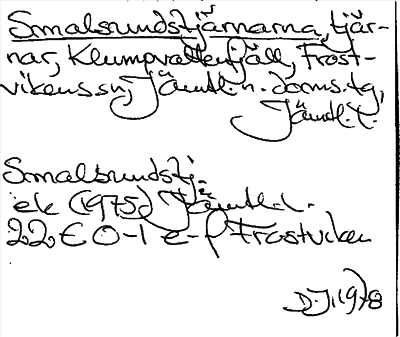 Smalsundstjärnarna, tjär-
nar, Klumpvattenfjäll, Frost-
vikens sn, Jämtl. n. doms. tg,
Jämtl. l.
Smalsundstj.
ek (1975) Jämtl. l.
22 E 0-1 e-f Frostviken
D.J. 1978